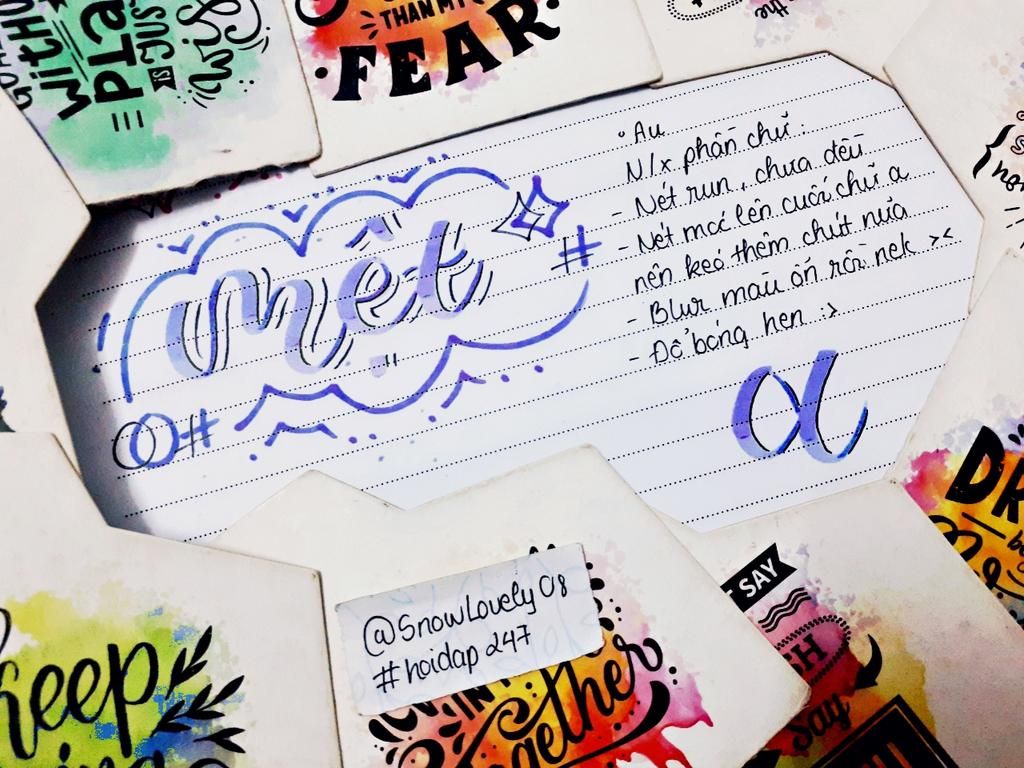 WITHOU
PLA
IS
THAN MY
FEAR
the
mệt
#
#
• Au
N/x phần chữ :
- Nét run, chưa đều
- Nét móc lên cuối chữ a
nên kéo thêm chút nữa
- Blur màu ổn rồi nek ><
- Đổ bóng hen :>
a
@SnowLovely08
#hoidap247
keep
together
SAY
SH
say
DR